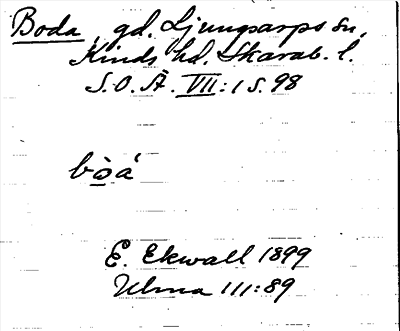 Boda, gd. Ljungsarps sn,
Kinds hd. Skarab. l.
S.O.Ä. VII:1 s. 98
bo̲̊̀á
E. Ekwall 1899
Ulma 111:89